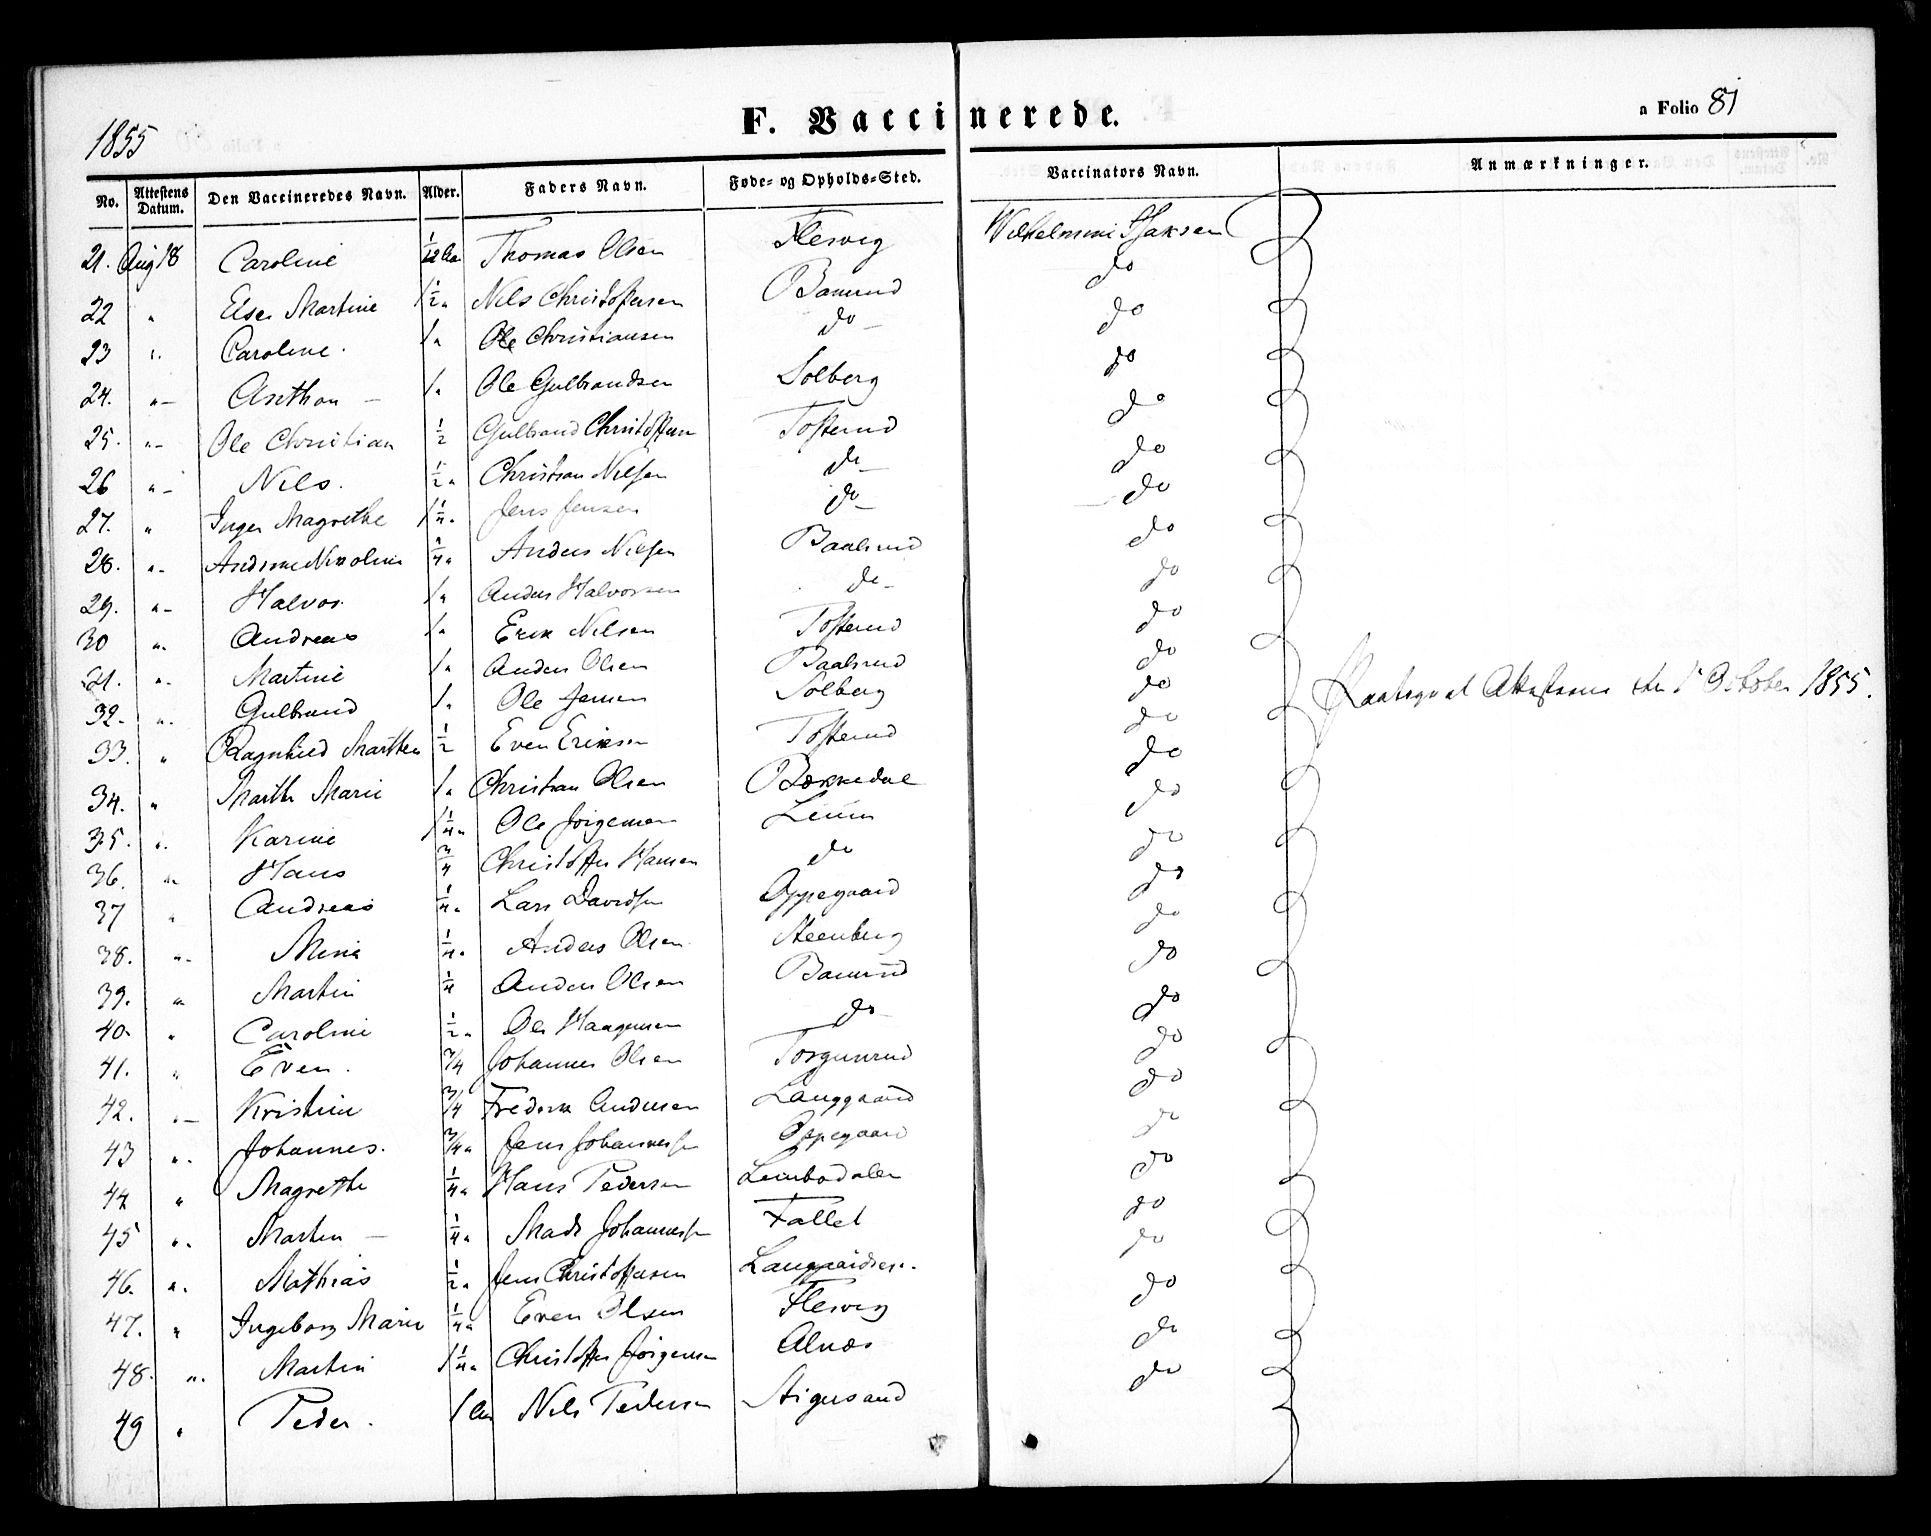 1855
F. Vaccinerede.
a Folio 81
No. Attestens Datum. Den Vaccineredes Navn. Alder. Faders Navn. Føde- og Opholds-Sted. Vaccinators Navn. Anmærkninger.
21. Aug 18 Caroline 1/12 Thomas Olsen Flesvig
22 " Else Martine 1 1/2 " Nils Christoffersen do
23 " Caroline. 1 " Ole Christiansen do - do
24. " - - 1 " Ole Gulbrandsen Solberg do
25. " - Ole Christian 1/2 Gulbrand Christoffersen Tosterud do
26 " - Nils. 1/2 " Christian Nilsen do - do
27. " Inger Magrethe 1 1/4 " Jens Jensen do - do
28. " - 1/4 " Anders Nilsen Baalsrud do
29. " - Halvor 1 " Anders Halvorsen do - do
30 " - Andreas 1 " Erik Nilsen Tosterud do
31. " - Martine 1 " Anders Olsen Baalsrud do
32. " - Gulbrand 1 " Ole Jensen Solberg do 1855.
33. " Ragnhild Marthea 1/2 Even Eriksen Tosterud do
34. " Marthe Marie 1 " Christian Olsen Bækkedal do
35. " Karine 1 1/4 " Ole Jørgensen do
36. " Hans 3/4 Christoffer Hansen do do
37 " Andreas 1/4 " Lars Davidsen Oppegaard do
38. " - 1/4 " Anders Olsen Steenberg do
39. " Martin 1/4 Anders Olsen do
40. " Caroline 1/2 " Ole Haagensen do - do
41. " Even. 3/4 Johannes Olsen Torgunrud do
42. " - Kristine 3/4 Fredrik Andersen Langgaard do
43 " - Johannes. 3/4 " Jens Johannessen Oppegaard do
44 " Magrethe 1/4 " Hans Pedersen do
45 " - Martin - 1/4 " Mads Johannessen Fallet do
46. " - Mathias 1/2 " Jens Christoffersen do
47. " Ingeborg Marie 1/4 " Even Olsen Flesvig do
48. " - Martin 1 1/4 " Christoffer Jørgensen Alnæs do
49 " Peder. 1 Nils Pedersen Stigersand do